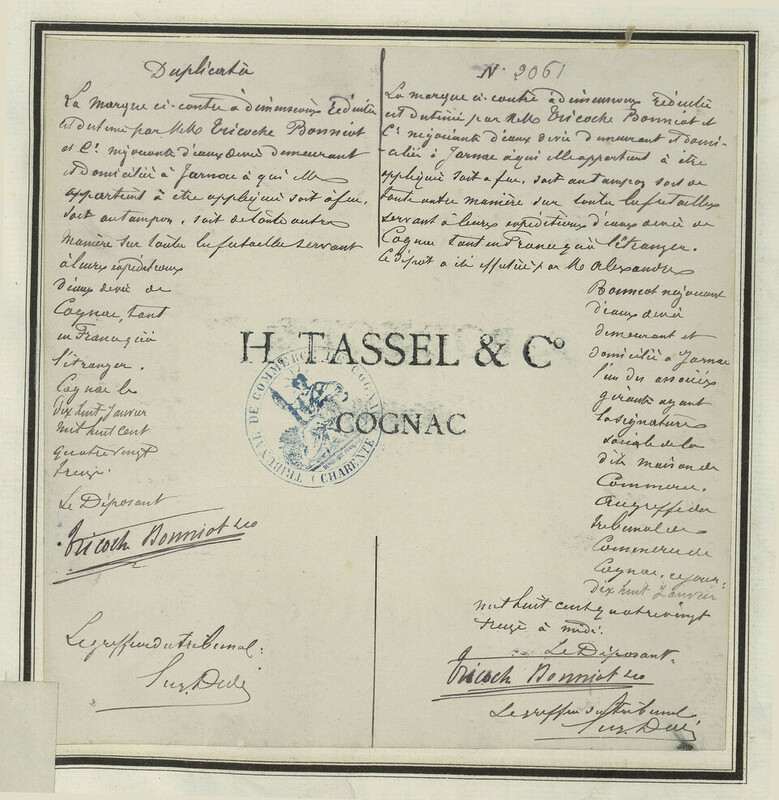 Duplicata
La marque ci-contre à dimensions réduites
est destinée par MM Tricoche Bonniot
et Cie négociants d'eaux de vie demeurant
et domiciliés à Jarnac à qui elle
appartient à être appliquée soit à feu,
soit au tampon, soit de toute autre
manière sur toutes les futailles servant
à leurs expéditions
d'eaux de vie de
Cognac, tant
en France qu'à
l'étranger.
Cognac le
dix huit Janvier
mil huit cent
quatre vingt
treize.
Le Déposant
Tricoche Bonniot & co
Le greffier du tribunal:
N° 2061
La marque ci-contre à dimensions réduites
est destinée par MM Tricoche Bonniot et
Cie négociants d'eaux de vie demeurant et domi-
-ciliés à Jarnac à qui elle appartient à être
appliquée soit à feu, soit au tampon soit de
toute autre manière sur toutes les futailles
servant à leurs expéditions d'eaux de vie de
Cognac tant en France qu'à l'étranger.
Le dépôt a été effectué par M. Alexandre
Bonniot négociant
d'eaux de vie
demeurant et
domicilié à Jarnac
l'un des associés
gérants ayant
la signature
sociale de la
dite maison de
Commerce.
Au greffe du
tribunal de
Commerce de
Cognac, ce jour:
dix huit Janvier
mil huit cent quatre vingt
treize à midi.
Le Déposant.
Tricoche Bonniot & co
Le greffier du tribunal
H. TASSEL & Co
COGNAC
TRIBUNAL DE COMMERCE DE COGNAC
(CHARENTE)